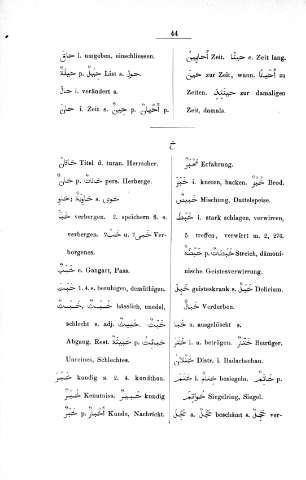 44
حاق i. umgeben, einschliessen.
حول s. List حِيَلٌ p. حيلَة
حال i. verändert s.
حان i. Zeit s. حِينٌ p. أَحْيَانٌ p.
أحايين Zeit. حينًا e. Zeit lang.
حين zur Zeit, wann. أحيانًا zu
Zeiten. حينئذٍ zur damaligen
Zeit, damals.
خ
خاقان Titel d. turan. Herrscher.
خان p. خانات pers. Herberge.
حوى s. خاوية ;خاو
خبأ verbergen. 2. speichern 8. s.
verbergen.
borgenes.
خبب e. Gangart, Pass.
خبت 1. 4. s. beruhigen, demüthigen.
hässlich, unedel,
schlecht s. adj. خبيث p. خبث
Abgang, Rest. خبيثة p. خبائث
Unreines, Schlechtes.
خبر kundig u. 2. 4. kundthun.
خبر Kenntniss. خبير kundig
خبر p. أخبار Kunde, Nachricht.
Erfahrung.
خبز i. kneten, backen. خبز Brod.
Mischung, Dattelspeise.
خبط i. stark schlagen, verwirren,
5. treffen, verwirrt m. 2, 276.
خبطة p. خبطات Streich, dämoni-
nische Geistesverwirrung.
خبل geisteskrank s. خبل Delirium.
خبال Verderben.
خبا s. ausgelöscht s.
ختر i. u. beträgen. ختّار Betrüger,
ختلان Distr. i. Badachschan.
ختم i. ختام besiegeln. خاتم p.
خواتم Siegelring, Siegel.
خجل s. خجل beschämt s. خجل ver-